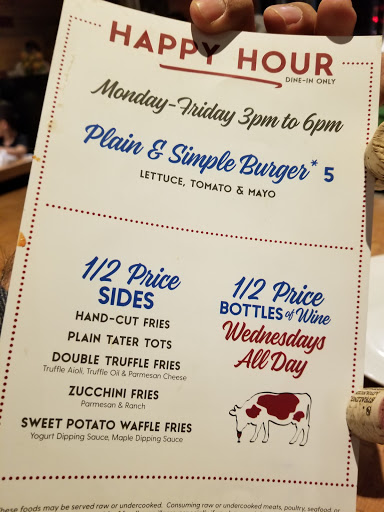 HAPPY HOUR
DINE-IN ONLY
Monday-Friday 3pm to 6pm
Plain & Simple Burger* 5
LETTUCE, TOMATO & MAYO
1/2 Price
SIDES
HAND-CUT FRIES
PLAIN TATER TOTS
DOUBLE TRUFFLE FRIES
Truffle Aioli, Truffle Oil & Parmesan Cheese
ZUCCHINI FRIES
Parmesan & Ranch
SWEET POTATO WAFFLE FRIES
Yogurt Dipping Sauce, Maple Dipping Sauce
1/2 Price
BOTTLES of Wine
Wednesdays
All Day
These foods may be served raw or undercooked. Consuming raw or undercooked meats, poultry, seafood, or